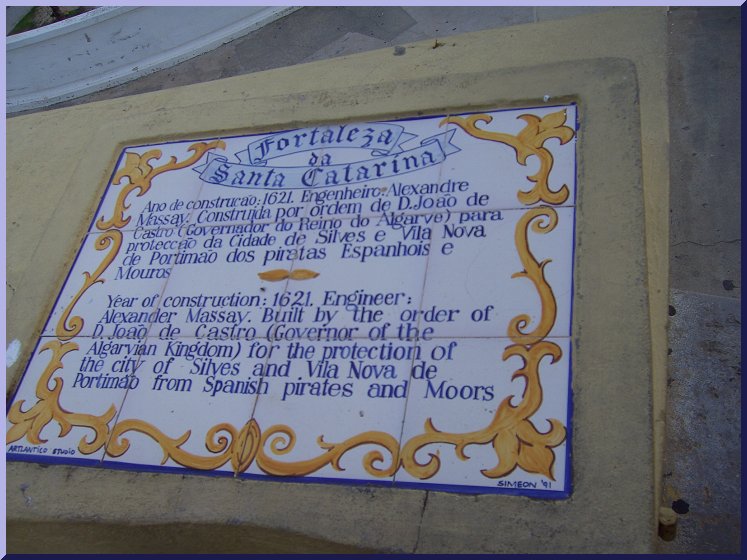 Fortaleza
da
Santa Catarina
Ano de construcao: 1621. Engenheiro: Alexandre
Massay. Construida por ordem de D. João de
Castro (Governador do Reino do Algarve) para
protecção da Cidade de Silves e Vila Nova
de Portimão dos piratas Espanhois e
Mouros
Year of construction: 1621. Engineer:
Alexander Massay. Built by the order of
D. João de Castro (Governor of the
Algarvian Kingdom) for the protection of
the city of Silves and Vila Nova de
Portimão from Spanish pirates and Moors
ARTLANTICO STUDIO
SIMEON '91